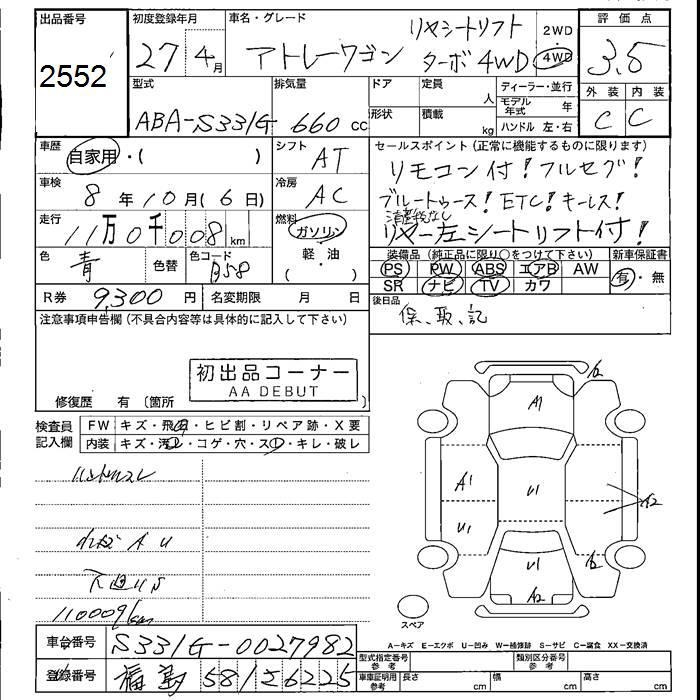 出品番号
2552
初度登録年月
27年4月
車名・グレード
アトレーワゴン
リヤシートリフト
ターボ 4WD
2WD
4WD
評価点
3.5
外装 内装
C C
型式
ABA-S331G
排気量
660 cc
ドア
形状
定員
人
積載
kg
ディーラー・並行
モデル年式 年
ハンドル 左・右
車歴
自家用・( )
シフト
AT
車検
8年10月(6日)
冷房
AC
走行
11万0千008km
燃料
ガソリン
軽・油
( )
色
青
色替
色コード
B58
R券
9,300円
名変期限 月 日
セールスポイント(正常に機能するものに限ります)
リモコン付!フルセグ!
ブルートゥース!ETC!キーレス!
消費税なし
リヤー左シートリフト付!
装備品(純正品に限り○をつけて下さい)
PS PW ABS エアB AW
SR ナビ TV カワ
新車保証書
有・無
後日品
保、取、記
注意事項申告欄(不具合内容等は具体的に記入して下さい)
初出品コーナー
AA DEBUT
修復歴 有(箇所
検査員記入欄
FW キズ・飛石・ヒビ割・リペア跡・X要
内装 キズ・汚レ・コゲ・穴・スレ・キレ・破レ
ハンドルスレ
A U
下廻りS
110009km
A2
A1
A1
U1
U1
A2
A2
U1
A2
スペア
A-キズ E-エクボ U-凹み W-補修跡 S-サビ C-腐食 XX-交換済
車台番号
S331G-0027982
登録番号
福島 581 さ 6225
型式指定番号
参考
類別区分番号
参考
車庫証明用
参考
長さ cm
幅 cm
高さ cm